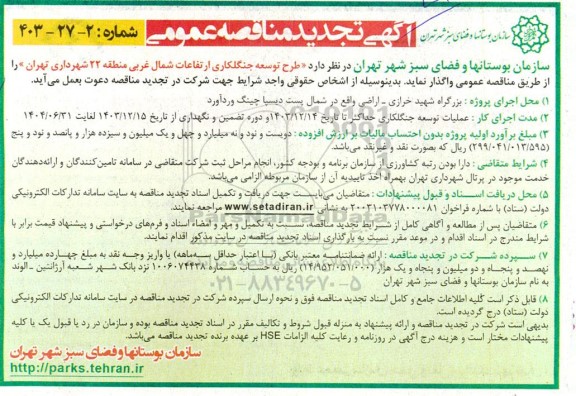 آگهی تجدید مناقصه عمومی
شماره: ۲-۲۷-۴۰۳
سازمان بوستانها و فضای سبز شهر تهران
سازمان بوستانها و فضای سبز شهر تهران در نظر دارد «طرح توسعه جنگلکاری ارتفاعات شمال غربی منطقه ۲۲ شهرداری تهران» را
از طریق مناقصه عمومی واگذار نماید. بدینوسیله از اشخاص حقوقی واجد شرایط جهت شرکت در تجدید مناقصه دعوت بعمل می‌آید.
۱) محل اجرای پروژه : بزرگراه شهید خرازی - اراضی واقع در شمال پست دیسپا چینگ وردآورد
۲) مدت اجرای کار : عملیات توسعه جنگلکاری حداکثر تا تاریخ ۱۴۰۳/۱۲/۱۴ و دوره تضمین و نگهداری از تاریخ ۱۴۰۳/۱۲/۱۵ لغایت ۱۴۰۴/۰۶/۳۱
۳) مبلغ برآورد اولیه پروژه بدون احتساب مالیات بر ارزش افزوده : دویست و نود و نه میلیارد و چهل و یک میلیون و سیزده هزار و پانصد و نود و پنج
(۲۹۹/۰۴۱/۰۱۳/۵۹۵) ریال که بصورت نقد و غیرنقد می‌باشد.
۴) شرایط متقاضی : دارا بودن رتبه کشاورزی از سازمان برنامه و بودجه کشور، انجام مراحل ثبت شرکت متقاضی در سامانه تامین‌کنندگان و ارائه‌دهندگان
خدمت موجود در پرتال شهرداری تهران بهمراه اخذ تاییدیه آن از سازمان مربوطه الزامی می‌باشد.
۵) محل دریافت اسناد و قبول پیشنهادات : متقاضیان می‌بایست جهت دریافت و تکمیل اسناد تجدید مناقصه به سایت سامانه تدارکات الکترونیکی
دولت (ستاد) با شماره فراخوان ۲۰۰۳۱۰۳۷۷۸۰۰۰۰۸۱ به نشانی www.setadiran.ir مراجعه نمایند.
۶) متقاضیان پس از مطالعه و آگاهی کامل از شرایط تجدید مناقصه، نسبت به تکمیل و مهر و امضاء اسناد و فرم‌های درخواستی و پیشنهاد قیمت برابر با
شرایط مندرج در اسناد اقدام و در موعد مقرر نسبت به بارگذاری اسناد تجدید مناقصه در سایت مذکور اقدام نمایند.
۷) سپرده شرکت در تجدید مناقصه : ارائه ضمانتنامه معتبر بانکی (با اعتبار حداقل سه‌ماهه) یا واریز وجه نقد به مبلغ چهارده میلیارد و
نهصد و پنجاه و دو میلیون و پنجاه و یک هزار (۱۴/۹۵۲/۰۵۱/۰۰۰) ریال به حساب شماره ۱۰۰۶۰۷۴۴۳۸ نزد بانک شهر شعبه آرژانتین - الوند
به نام سازمان بوستانها و فضای سبز شهر تهران
۸) قابل ذکر است کلیه اطلاعات جامع و کامل اسناد تجدید مناقصه فوق و نحوه ارسال سپرده شرکت در تجدید مناقصه در سایت سامانه تدارکات الکترونیکی
دولت (ستاد) درج گردیده است.
بدیهی است شرکت در تجدید مناقصه و ارائه پیشنهاد به منزله قبول شروط و تکالیف مقرر در اسناد تجدید مناقصه بوده و سازمان در رد یا قبول یک یا کلیه
پیشنهادات مختار است و هزینه درج آگهی در روزنامه و رعایت کلیه الزامات HSE بر عهده برنده تجدید مناقصه می‌باشد.
سازمان بوستانها و فضای سبز شهر تهران
http://parks.tehran.ir
ParsNamadData
۰۲۱-۸۸۳۴۹۶۷۰-۵